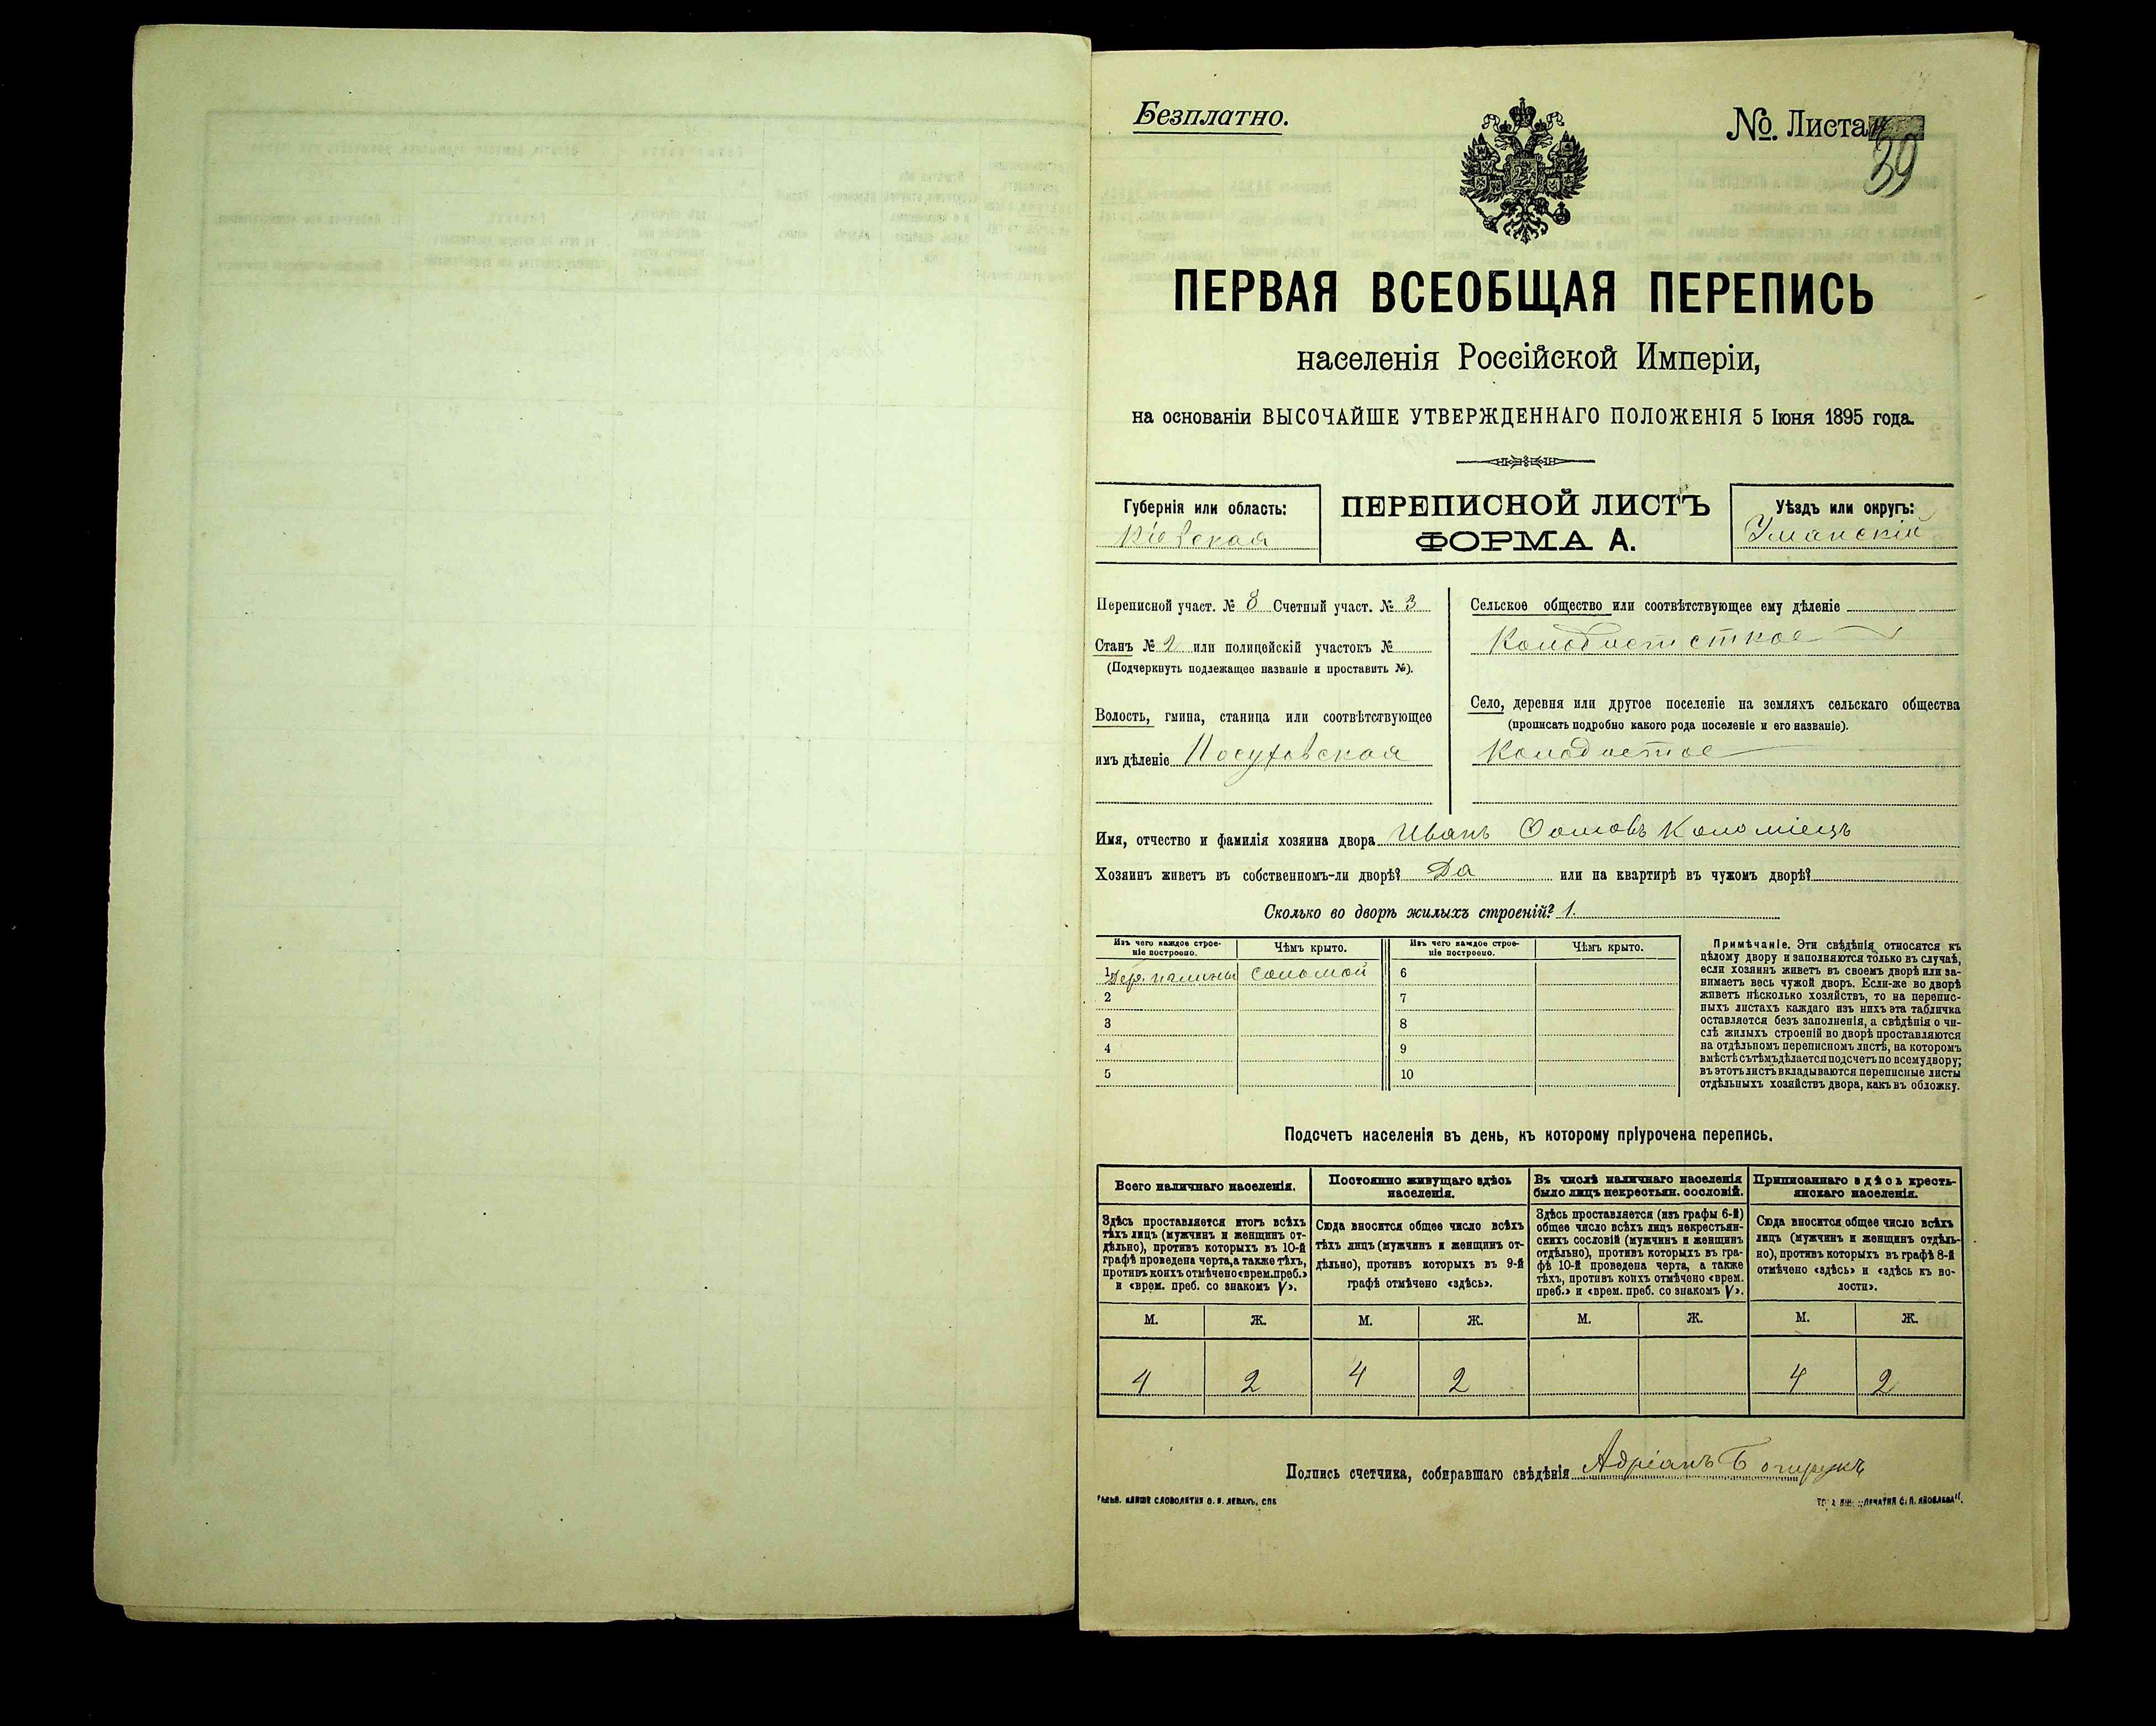 Безплатно.
№. Листа
39
ПЕРВАЯ ВСЕОБЩАЯ ПЕРЕПИСЬ
населенія Россійской Имперіи,
на основаніи ВЫСОЧАЙШЕ УТВЕРЖДЕННАГО ПОЛОЖЕНІЯ 5 Іюня 1895 года.
Губернія или область:
Кіевская
ПЕРЕПИСНОЙ ЛИСТЪ
ФОРМА А.
Уѣздъ или округъ:
Уманскій
Переписной участ. № 8 Счетный участ. № 3
Станъ № 2 или полицейскій участокъ №
(Подчеркнуть подлежащее названіе и проставить №).
Волость, гмина, станица или соотвѣтствующее
имъ дѣленіе Посуховская
Сельское общество или соотвѣтствующее ему дѣленіе
Колодистское
Село, деревня или другое поселеніе на земляхъ сельскаго общества
(прописать подробно какого рода поселеніе и его названіе).
Колодистое
Имя, отчество и фамилія хозяина двора Иванъ Фомовъ Коломіецъ
Хозяинъ живетъ въ собственномъ-ли дворѣ? Да или на квартирѣ въ чужомъ дворѣ?
Сколько во дворѣ жилыхъ строеній? 1.
Изъ чего каждое строе-
ніе построено.
Чѣмъ крыто.
Изъ чего каждое строе-
ніе построено.
Чѣмъ крыто.
1 Дер. и глины Соломой 6
2 7
3 8
4 9
5 10
Примѣчаніе. Эти свѣдѣнія относятся къ
цѣлому двору и заполняются только въ случаѣ,
если хозяинъ живетъ въ своемъ дворѣ или за-
нимаетъ весь чужой дворъ. Если-же во дворѣ
живетъ нѣсколько хозяйствъ, то на перепис-
ныхъ листахъ каждаго изъ нихъ эта табличка
оставляется безъ заполненія, а свѣдѣнія о чи-
слѣ жилыхъ строеній во дворѣ проставляются
на отдѣльномъ переписномъ листѣ, на которомъ
вмѣстѣ съ тѣмъ дѣлается подсчетъ по всему двору;
въ этотъ листъ вкладываются переписные листы
отдѣльныхъ хозяйствъ двора, какъ въ обложку.
Подсчетъ населенія въ день, къ которому пріурочена перепись.
Всего наличнаго населенія.
Здѣсь проставляется итогъ всѣхъ
тѣхъ лицъ (мужчинъ и женщинъ от-
дѣльно), противъ которыхъ въ 10-й
графѣ проведена черта, а также тѣхъ,
противъ коихъ отмѣчено «врем. преб.»
и «врем. преб. со знакомъ V».
Постоянно живущаго здѣсь
населенія.
Сюда вносится общее число всѣхъ
тѣхъ лицъ (мужчинъ и женщинъ от-
дѣльно), противъ которыхъ въ 9-й
графѣ отмѣчено «здѣсь».
Въ числѣ наличнаго населенія
было лицъ некрестьян. сословій.
Здѣсь проставляется (изъ графы 6-й)
общее число всѣхъ лицъ некрестьян-
скихъ сословій (мужчинъ и женщинъ
отдѣльно), противъ которыхъ въ гра-
фѣ 10-й проведена черта, а также
тѣхъ, противъ коихъ отмѣчено «врем.
преб.» и «врем. преб. со знакомъ V».
Приписаннаго здѣсь кресть-
янскаго населенія.
Сюда вносится общее число всѣхъ
лицъ (мужчинъ и женщинъ отдѣль-
но), противъ которыхъ въ графѣ 8-й
отмѣчено «здѣсь» и «здѣсь къ во-
лости».
М. Ж. М. Ж. М. Ж. М. Ж.
4 2 4 2 4 2
Подпись счетчика, собиравшаго свѣдѣнія Адріанъ
СЛОВОЛИТНИ О. И. ЛЕМАНЪ, СПБ
С. П. ЯКОВЛЕВА